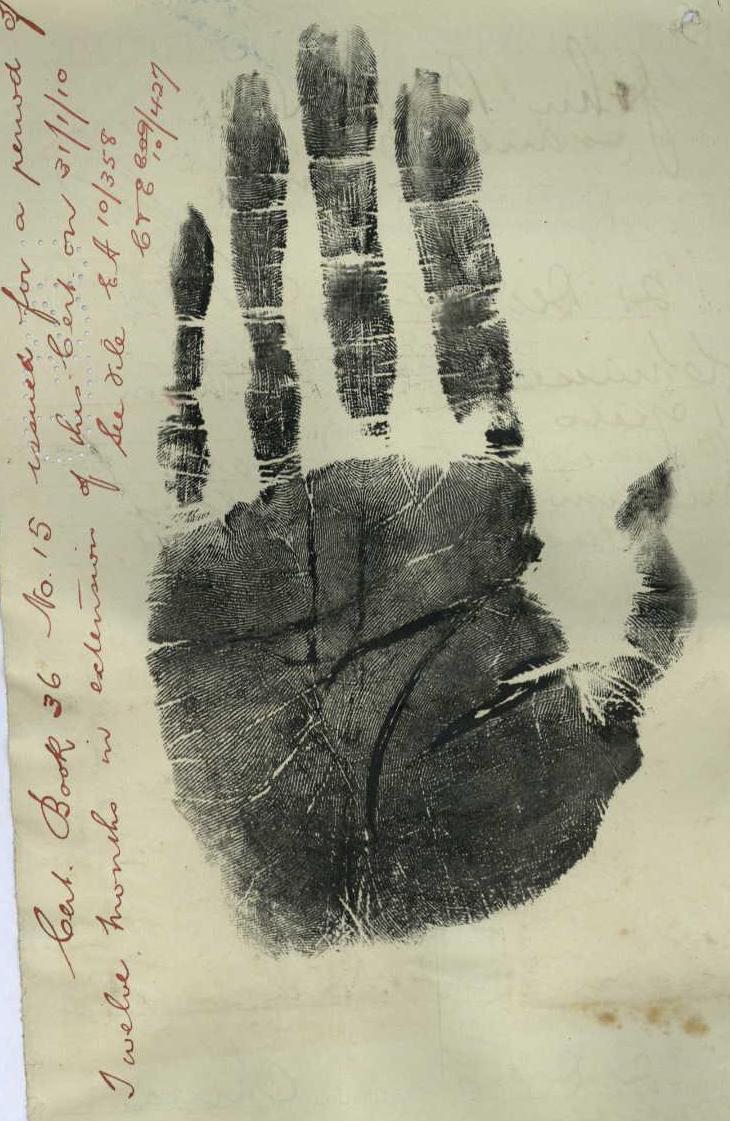 Cert. Book 36 No. 15 issued for a period of
Twelve months in extension of this Cert on 31/1/10
See file E A 10/358
10/427